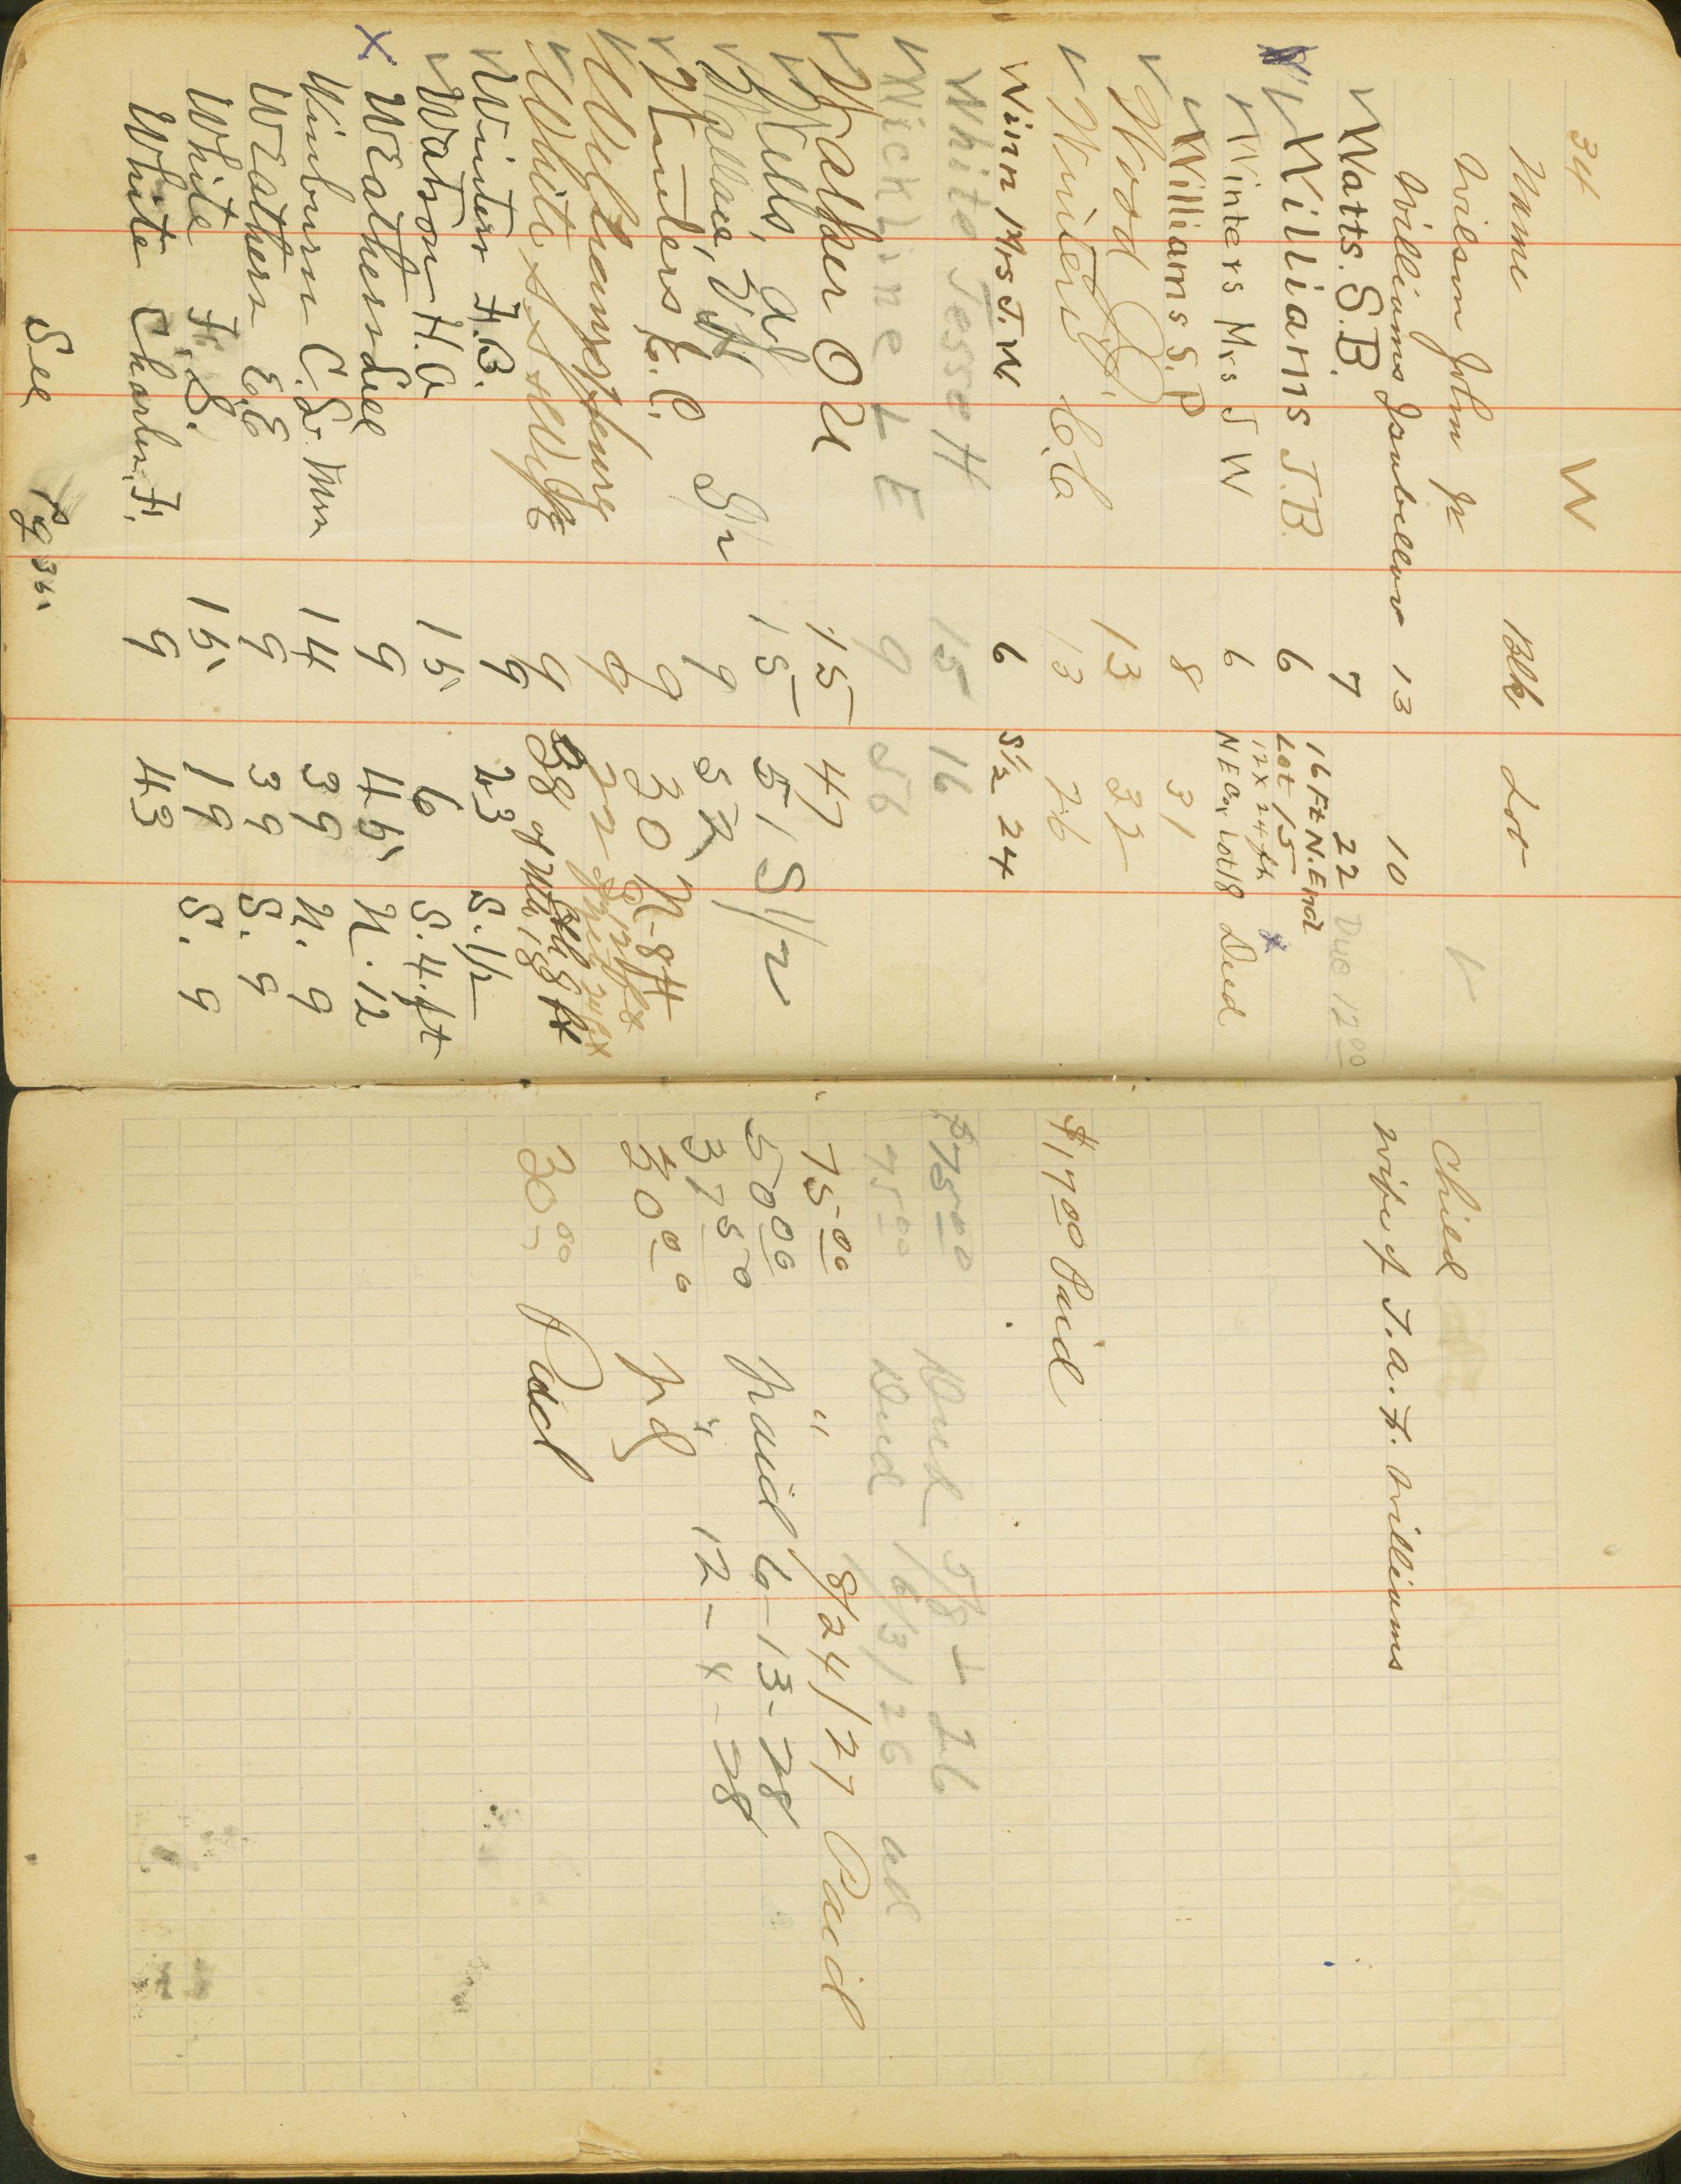 34 W
Name Blk Lot
Wilson John Jr Child
Williams Isabellar 13 10 wife of J. A. F. Williams
Watts. S. B. 7 22 Due 12 00
Williams J. B. 6 16 Ft N. End Lot 15
12 x 24 ft
Winters Mrs J W 6 N E Cor Lot 18 Deed
Williams S. P 8 31
Wood 13 32
Winters C. C. 13 26 $17.00 Paid
Winn Mrs J. W 6 S 1/2 24
White Jesse H 15 16 $75.00 Deed 26
Wickline L E 9 56 75.00 Deed 26
Walker O U 15 47 75.00 " 8/24/27 Paid
Wells, 15 51 S 1/2 50.00 paid 6-13-28
Wallace, S 1/2 9 52 37 50 " 12-4-28
Winters E. C. 9 30 N-8 ft 30.00 pd
9 22
White 9 38 30.00 Paid
Winters F. B. 9 23 S. 1/2
Watson H. G 15 6 S. 4. ft
X Weathers Dee 9 45 N. 12
Winburn C. L. Mrs 14 39 N. 9
Weathers E. E 9 39 S. 9
White F. S. 15 19 S. 9
White Charles, F. 9 43
See Pg 36